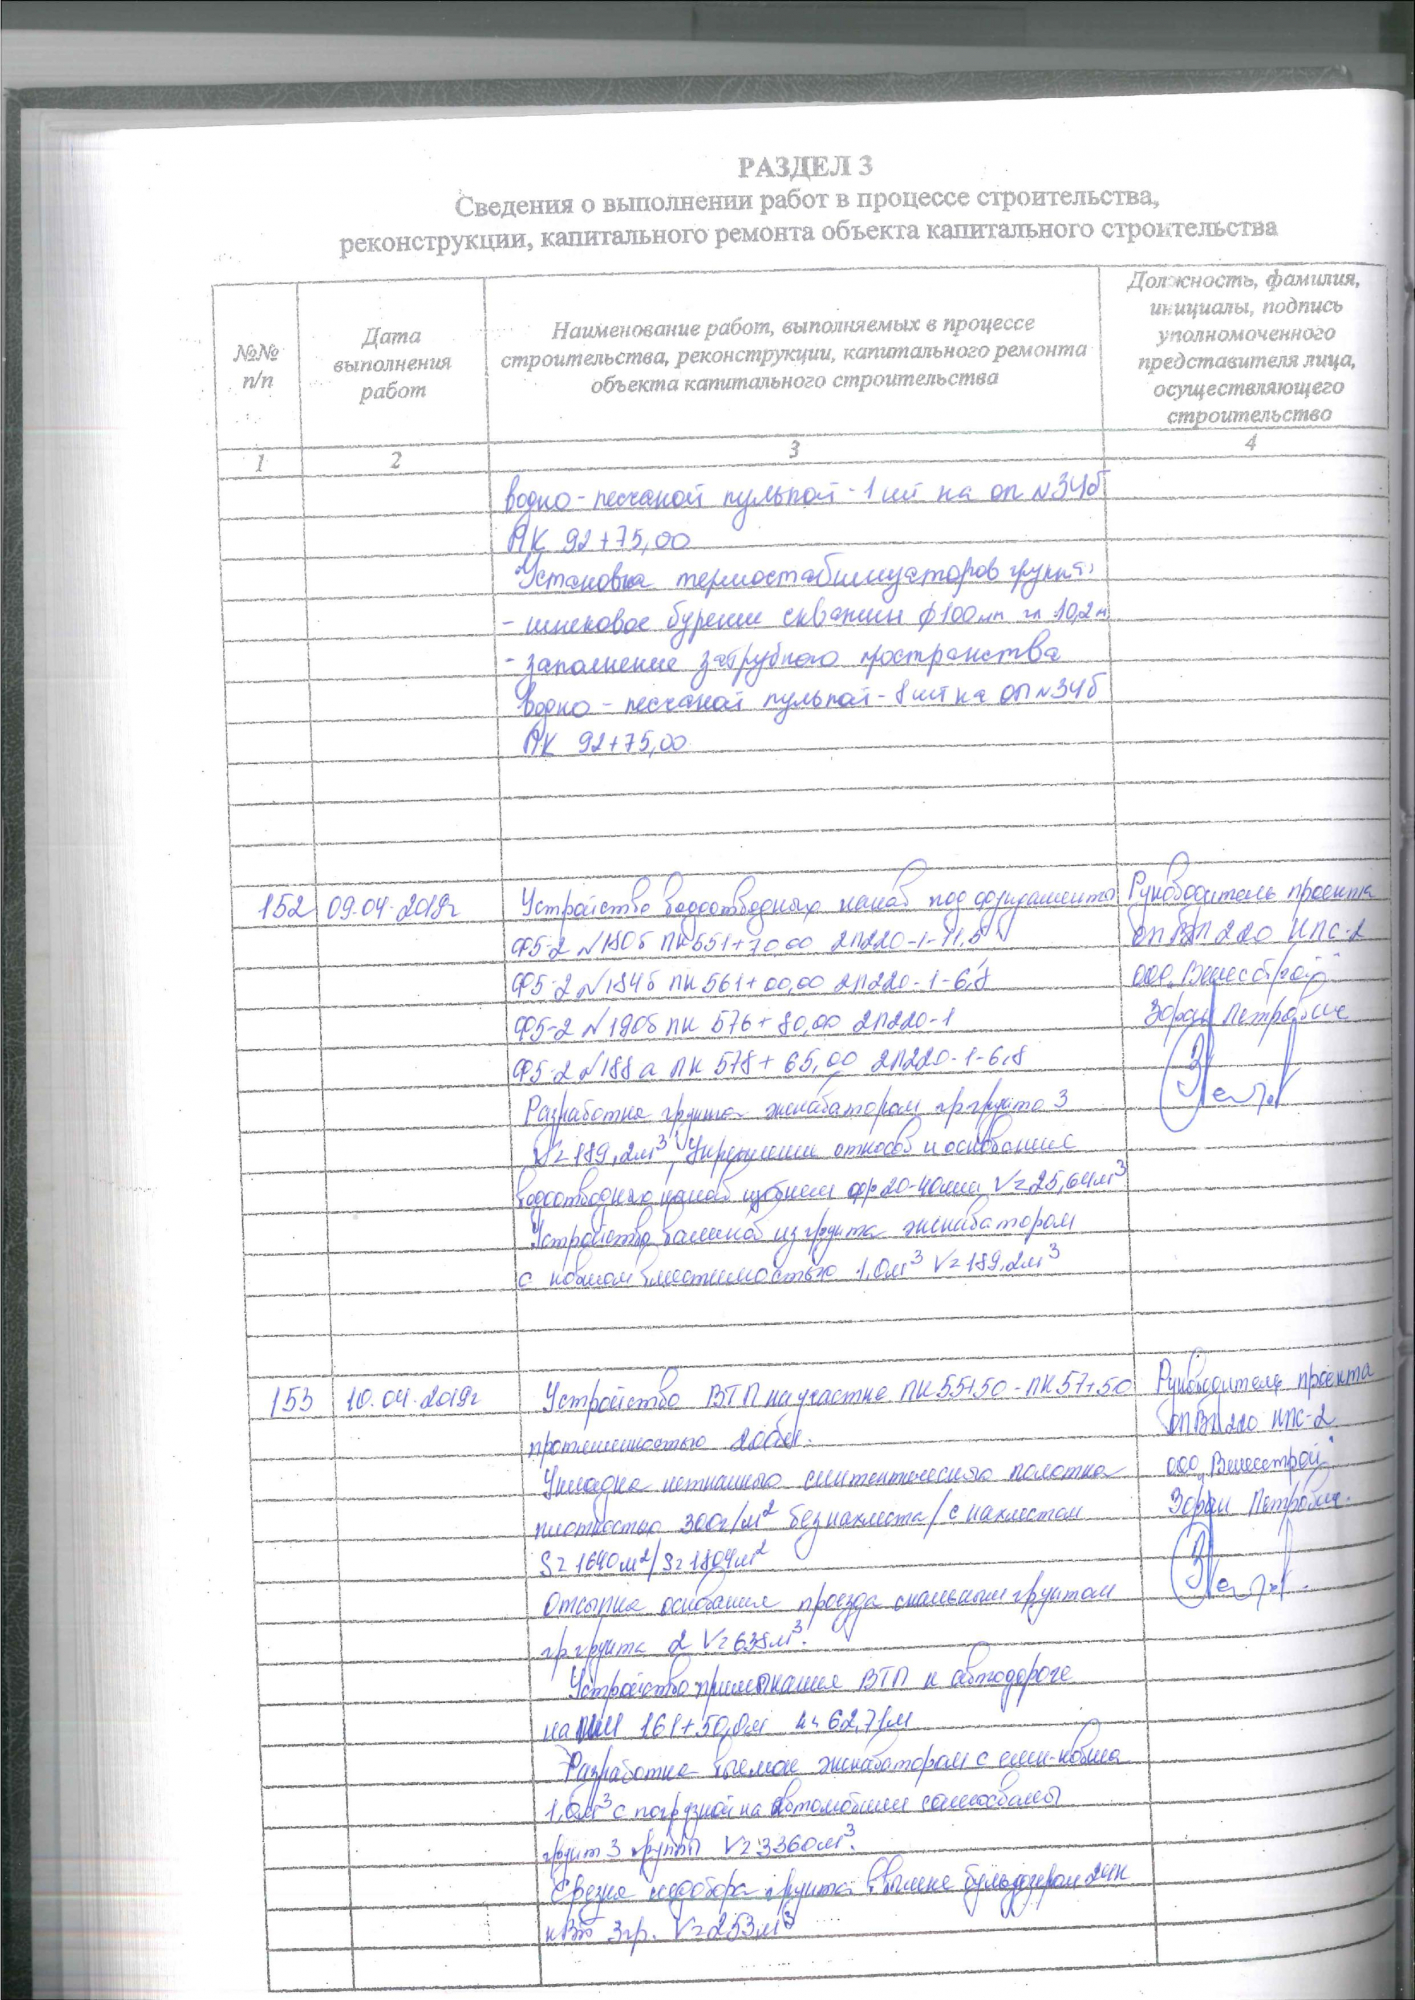 РАЗДЕЛ 3
Сведения о выполнении работ в процессе строительства,
реконструкции, капитального ремонта объекта капитального строительства
№№ п/п
Дата выполнения работ
Наименование работ, выполняемых в процессе строительства, реконструкции, капитального ремонта объекта капитального строительства
Должность, фамилия, инициалы, подпись уполномоченного представителя лица, осуществляющего строительство
1 2 3 4
водно-песчаной пульпой - 1 шт на оп №34б
ПК 92+75,00
Установка термостабилизаторов грунта:
- шнековое бурение скважин ф100мм гл 10,2м
- заполнение затрубного пространства
водно-песчаной пульпой - 8 шт на оп №34б
ПК 92+75,00
152 09.04.2019г Устройство водоотводных канав под фундаменты Руководитель проекта
Ф5-2 №180б ПК551+70,00 2П220-1-11,5 ОП ВЛ 220 НПС-2
Ф5-2 №184б ПК561+00,00 2П220-1-6,8 ООО "Велесстрой"
Ф5-2 №190б ПК 576+80,00 2П220-1 Зоран Петрович
Ф5-2 №188а ПК 578+65,00 2П220-1-6,8
Разработка грунта экскаватором гр.грунта 3
V=189,2м³, Укрепление откосов и основания
водоотводных канав щебнем фр 20-40мм V=25,64м³
Устройство валиков из грунта экскаватором
с ковшом вместимостью 1,0м³ V=189,2м³
153 10.04.2019г Устройство ВТП на участке ПК55+50 - ПК57+50 Руководитель проекта
протяженностью 200м. ОП ВЛ 220 НПС-2
Укладка нетканого синтетического полотна ООО "Велесстрой"
плотностью 300г/м² без нахлеста/с нахлестом Зоран Петрович.
S=1640м²/S=1804м²
Отсыпка основания проезда скальным грунтом
гр.грунта 2 V=638м³.
Устройство примыкания ВТП к автодороге
на 161+50,0м 62,71м
Разработка выемок экскаватором с емк.ковша
1,0м³ с погрузкой на автомобили самосвалы
грунт 3 групп V=3360м³.
Срезка недобора грунта в выемке бульдозером
3гр. V=253м³